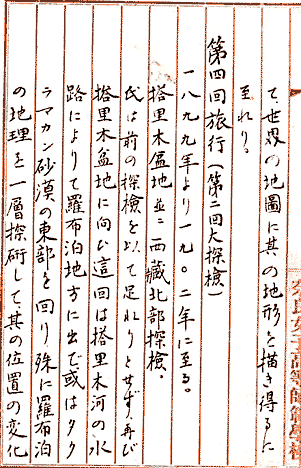 て、世界の地圖に其の地形を描き得るに
至れり。
第四回旅行(第二回大探檢)
一八九九年より一九〇二年に至る。
塔里木盆地並ニ西藏北部探檢。
氏は前の探檢を以て足れりとせず、再び
塔里木盆地に向ひ這回は塔里木河の水
路によりて羅布泊地方に出で或はタク
ラマカン砂漠の東部を回り殊に羅布泊
の地理を一層探硏して其の位置の変化
奈良女子高等師範學校